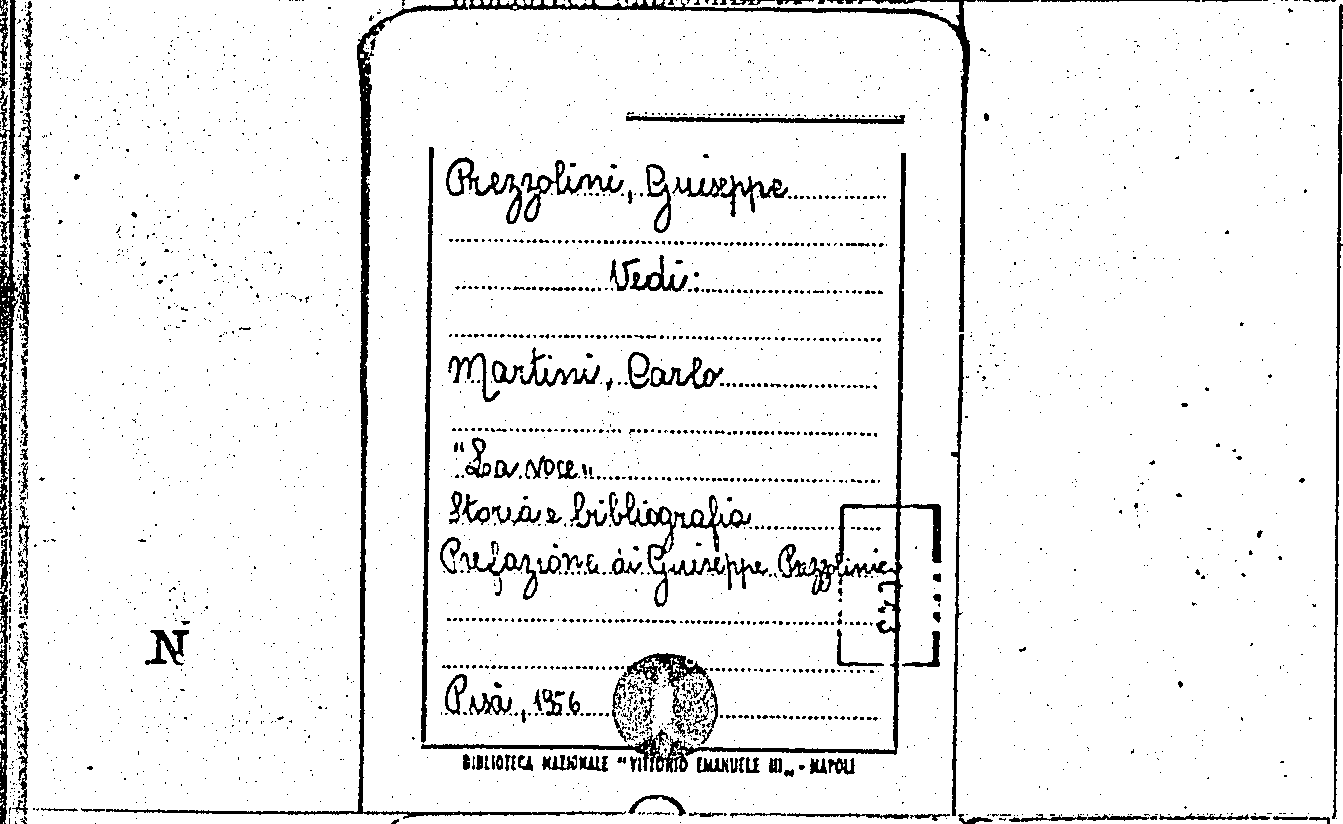 Prezzolini, Giuseppe
Vedi:
Martini, Carlo
"La voce"
Storia e bibliografia
Prefazione di Giuseppe Prezzolini
N
Pisa, 1956
BIBLIOTECA NAZIONALE "VITTORIO EMANUELE III" - NAPOLI